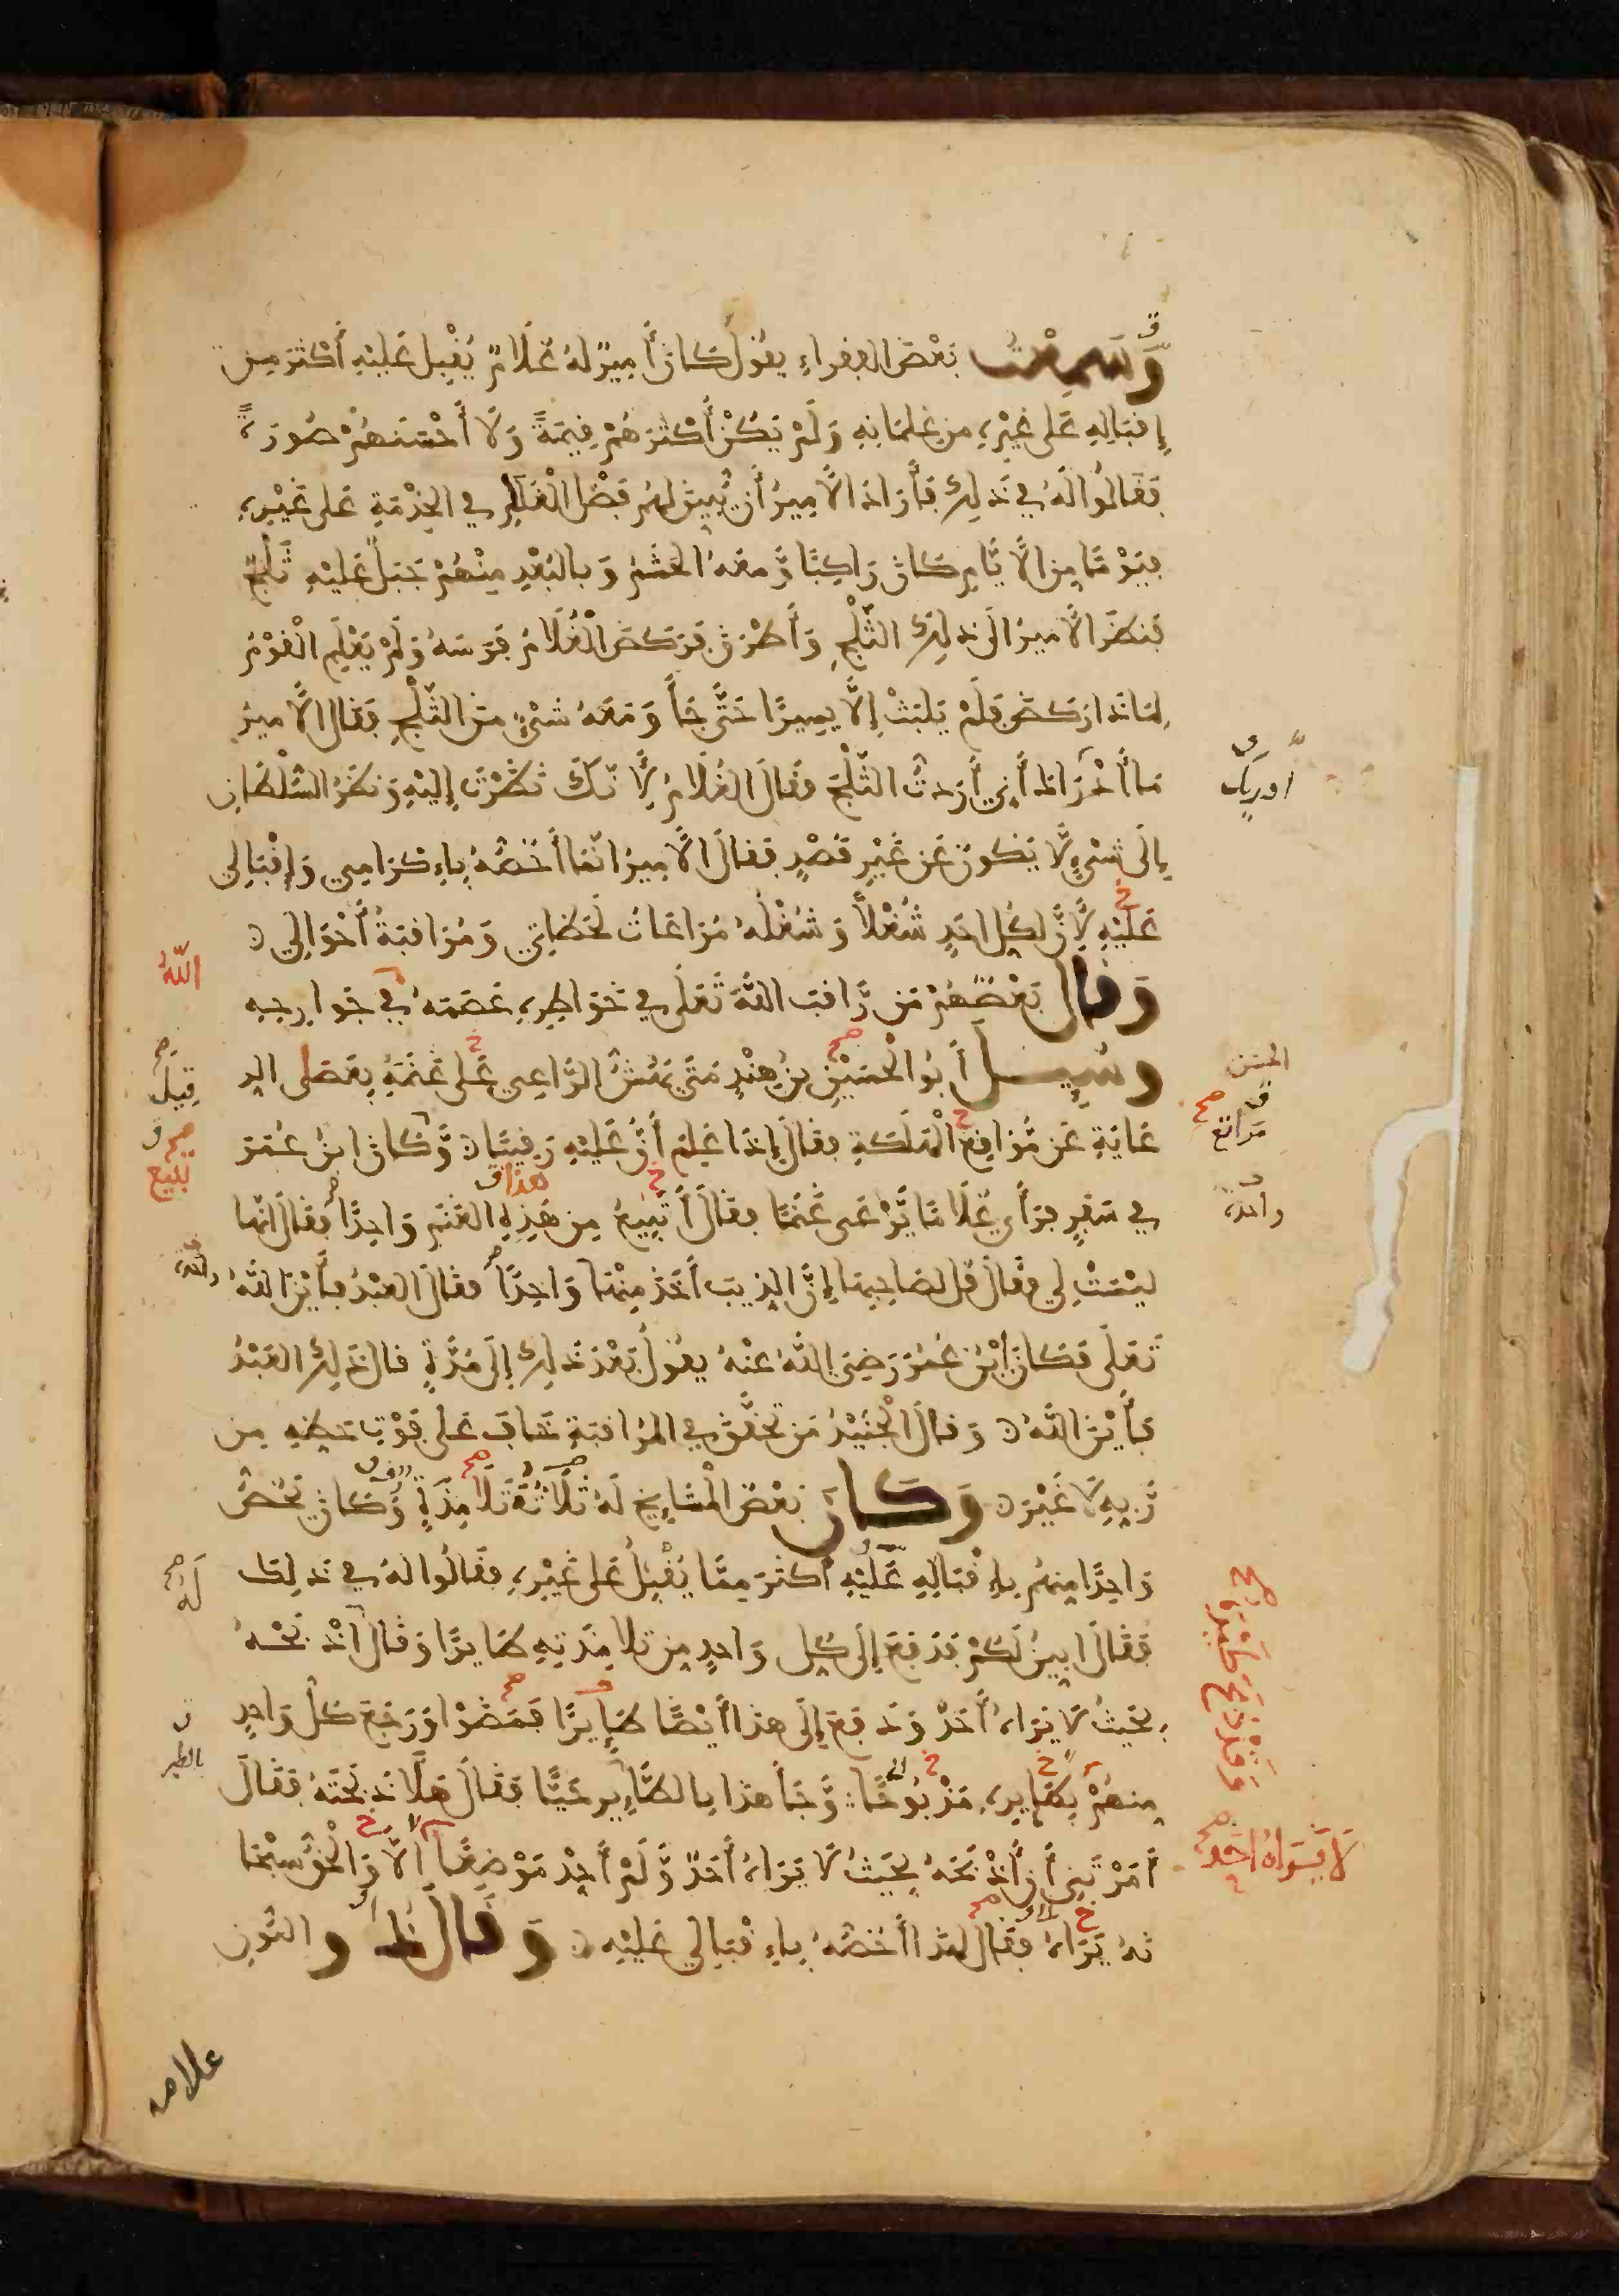 وَسَمِعْتُ بَعْضَ الفقراء يقول كَانَ أَمِيرٌ لَهُ غُلَامٌ يُقْبِل عَلَيْهِ أَكْثَرَ مِن
إِقْبَالِهِ عَلى غَيْرِهِ مِن غِلمَانِهِ وَلَمْ يَكُنْ أَكْثَرَهُمْ قِيمَةً وَلَا أَحْسَنَهُمْ صُورَةً
فَقَالُوا لَهُ فِي ذَلِكَ فَأَرَادَ الأَمِيرُ أَن يُبَيِّنَ لَهُم فَضْلَ الْغُلَامِ فِي الخِدْمَةِ عَلى غَيْرِهِ
فَيَوْمًا مِنَ الأَيَّامِ كَانَ رَاكِبًا وَّمَعَهُ الحَشَمُ وَبِالبُعْدِ مِنْهُمْ جَبَلٌ عَلَيْهِ ثَلْجٌ
فَنَظَرَ الأَمِيرُ الَى ذَلِكَ الثَّلْجِ وَأَطْرَقَ فَرَكَضَ الْغُلَامُ فَرَسَهُ وَلَمْ يَعْلَمِ الْقَوْمُ
لِمَاذَا رَكَضَ فَلَمْ يَلبَثْ إِلَّا يَسِيرًا حَتَّى جَأَ وَمَعَهُ شَيْءٌ مِنَ الثَّلْجِ فَقَالَ الأَمِيرُ
مَا أَدْرَاكَ أَنِي أَرَدتُ الثَّلْجَ فقَالَ الغُلَامُ لِأَنَّكَ نَظَرْتَ إِلَيْهِ وَنَظَرُ السُّلْطَانِ
إِلَى شَيْءٍ لَّا يَكُونُ عَنْ غَيْرِ قَصْدٍ فَقالَ الأَمِيرُ انَّمَا أَخُصُّهُ بِإِكْرَامِي وَإِقْبَالِي
عَلَيْهِ لِأَنَّ لِكُلِ احَدٍ شُغْلاً وَشُغْلُهُ مُرَاعَاتُ لَحَظَاتِي وَمُرَاقبَةُ أَحْوَالِي
وَقَال بَعْضُهُمْ مَن رَّاقَبَ اللَّهَ تَعَلَى فِي خَوَاطِرِهِ عَصَمَهُ فِي جَوَارِحِهِ
وسُئِل أَبُو الْحُسَيْنِ بنُ هِنْدٍ مَتَى يَهُشُّ الرَّاعِي عَلى غَنَمِهِ بِعَصَى الر
عَايَةِ عَن مَّوَاقِعِ الْهَلَكَةِ فقالَ إِذَا عَلِمَ أَنَّ عَلَيْهِ رَقِيبًا وَّكَانَ ابْنُ عُمَرَ
فِي سَفَرٍ فَرَأَى غُلَامًا يَّرْعَى غَنَمًا فقَالَ أَتَبِيعُ مِن هَذِهِ الغَنَمِ وَاحِدًا فقَالَ انَّها
لَيْسَتْ لِي فقَالَ قُل لصَاحِبِهَا إِنَّ الذِيبَ أَخَذَ مِنْهَا وَاحِدًا فقالَ العَبْدُ فَأَيْنَ اللَّهُ
تَعَلَى فَكَانَ ابْنُ عُمَرَ رَضِيَ اللَّهُ عَنْهُ يقُولُ بَعْدَ ذَلِكَ إِلَى مُدَّةٍ قالَ ذَلِكَ العَبْدُ
فَأَيْنَ اللَّهُ وَقالَ الْجُنَيْدُ مَن تَحَقَّقَ فِي المُرَاقَبَةِ خَافَ عَلى فَوْتِ حَظِهِ مِن
رَّبِهِ لَا غَيْرَ وَكَانَ بَعْضُ الْمَشَايِخِ لَهُ تَلَامِذَةٌ وَّكَانَ يَخُصُّ
وَاحِدًا مِنهُم بِإِقْبَالِهِ عَلَيْهِ أَكْثَرَ مِمَّا يُقْبِلُ عَلى غَيْرِهِ فقَالُوا لهُ فِي ذَلِكَ
فَقَالَ ابَيِّنُ لَكُمْ فَدَفَعَ إِلَى كُلِ وَاحِدٍ مِن تلامِذَتِهِ طَايرًا وَقَالَ اذْبَحْهُ
بِحَيْثُ لَا يَرَاهُ أَحَدٌ وَدَفَعَ إِلَى هذَا أَيْضًا طَايِرًا فَمَضَوْا وَرَجَعَ كُلُّ وَاحِدٍ
مِنهُمْ بِطَايِرِهِ مَذْبُوحًا وَّجَأَ هذَا بِالطَّايِرِ حَيًّا فقَالَ هَلَّا ذَبَحْتَهُ فَقَالَ
أَمَرْتَنِي أَنْ أَذْبَحَهُ بِحَيْثُ لَا يَرَاهُ أَحَدٌ وَّلَمْ أَجِدْ مَوْضِعًا إِلَّا وَالحَقُّ سُبْحَا
نَهُ يَرَاهُ فقَالَ لهذَا أَخُصُّهُ بِإِقْبَالِي عَلَيْهِ وَقَال ذُو النُّونِ
اللَّهُ
الحسَن
قِيلَ
مَرَاتع
للبيع
واحدة
واحدة
لَهُ
بالطير
لَا يَرَاهُ أحَد
علامه